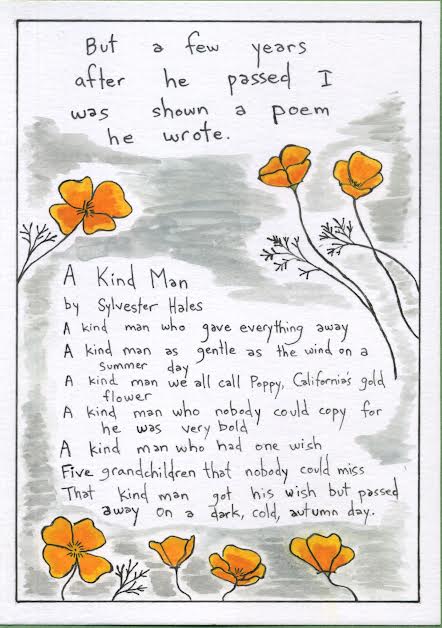 But a few years
after he passed I
was shown a poem
he wrote.
A Kind Man
by Sylvester Hales
A kind man who gave everything away
A kind man as gentle as the wind on a
summer day
A kind man we all call Poppy, California's gold
flower
A kind man who nobody could copy for
he was very bold
A kind man who had one wish
Five grandchildren that nobody could miss
That kind man got his wish but passed
away on a dark, cold, autumn day.